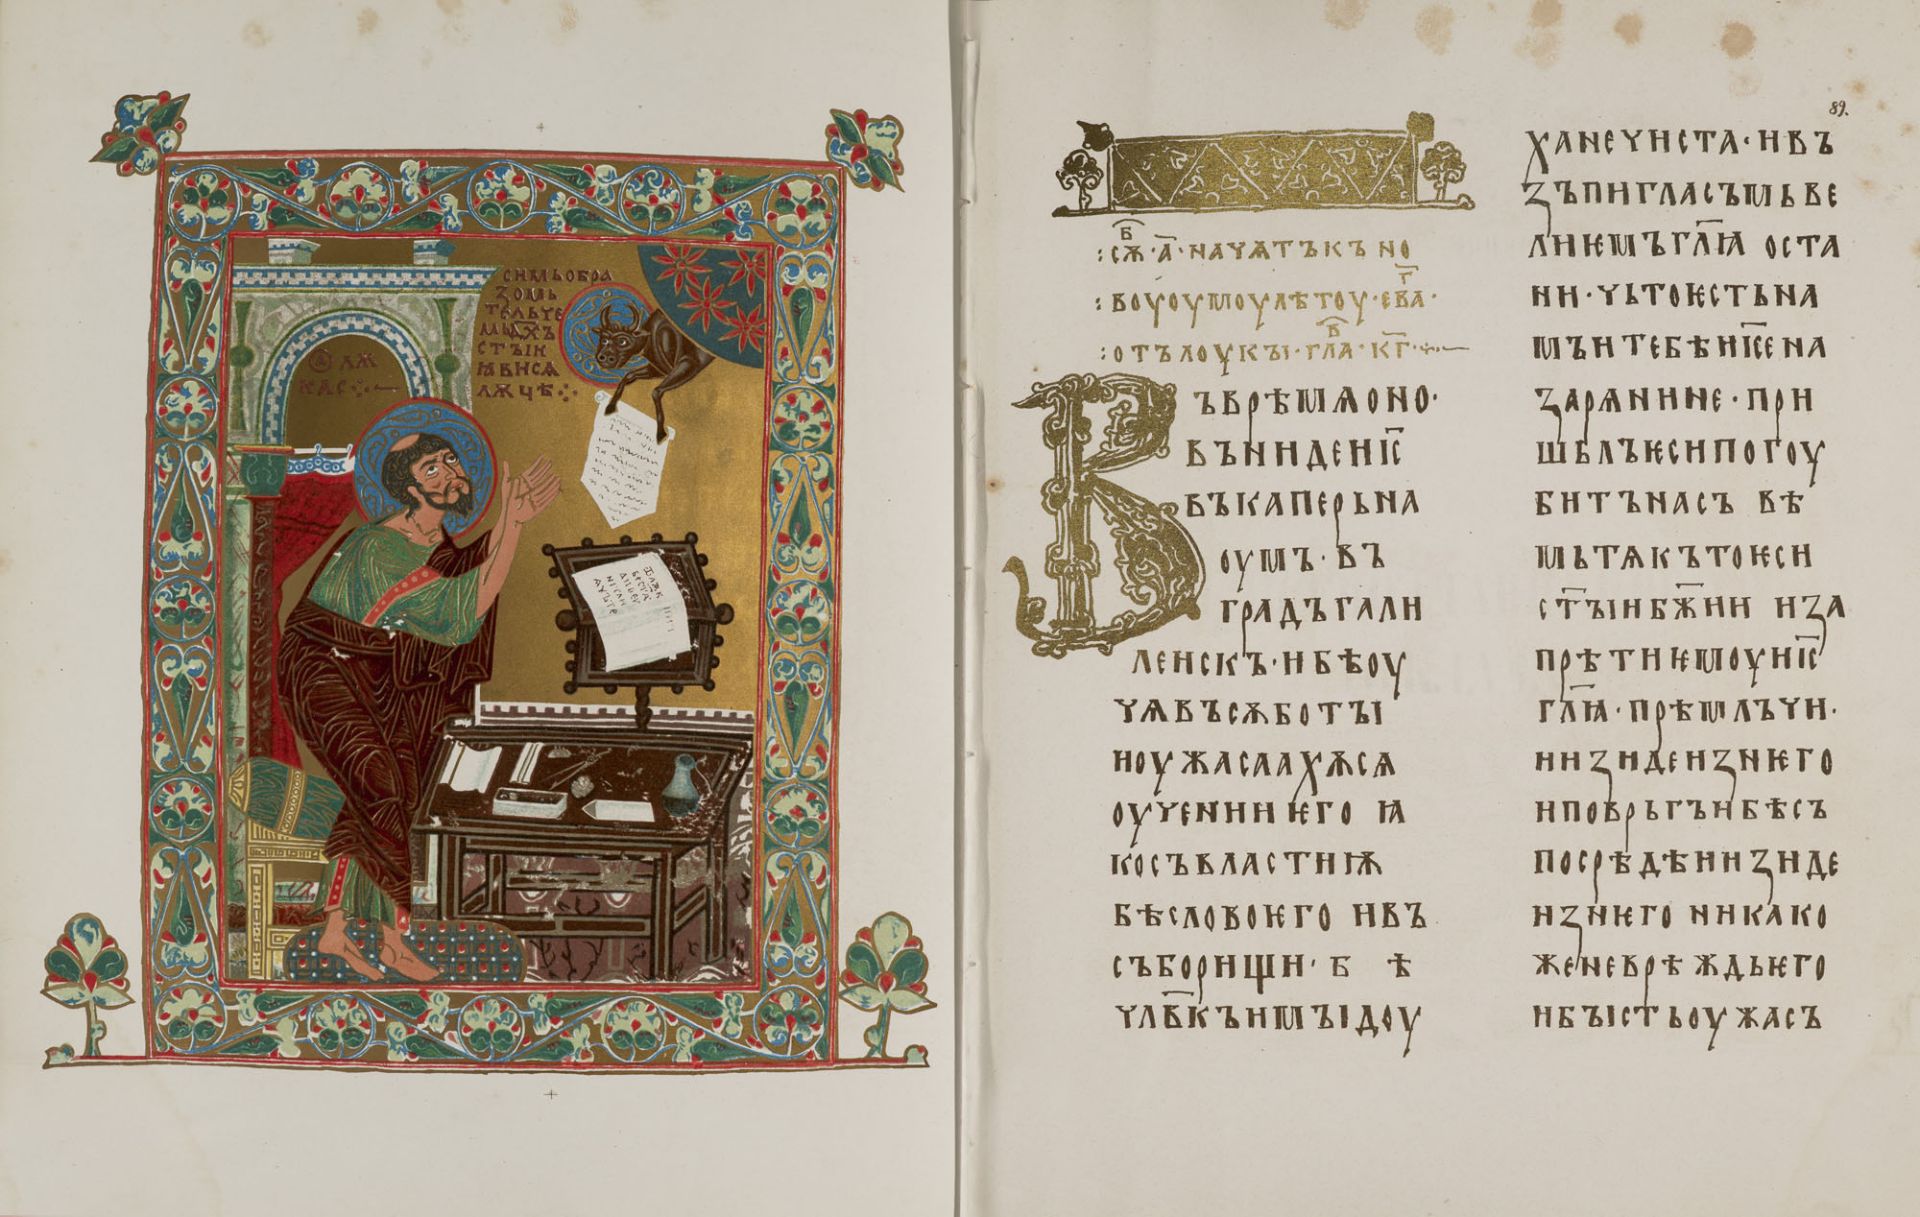 СИМЬ ОБРА
ЗОМЬ
ТЕЛЬЧЕ
МЬ ДХ҃Ъ
СТ҃ЫИ
ꙖВИ СѦ
ЛѪЦѢ
ЛѪ
КАС
89.
:СѪ҃Б·А҃·НАЧѦТЪКЪ НО
:ВОУОУМОУ ЛѢТОУ·ЕВА҃Г·
:ОТЪ ЛОУКЫ·ГЛА҃В·КГ҃·
ВЪ ВРѢМѦ ОНО·
ВЪНИДЕ Н ІС҃
ВЪ КАПЕРЬНА
ОУМЪ·ВЪ
ГРАДЪ ГАЛИ
ЛЕИСКЪ·И БѢ ОУ
ЧѦ ВЪ СѪБОТЫ
И ОУЖАСААХѪ СѦ
ОУЧЕНИИ ѤГО Ꙗ
КО СЪ ВЛАСТИѬ
БѢ СЛОВО ѤГО И ВЪ
СЪБОРИЩИ·Б Ѣ
ЧЛВ҃КЪ ИМЫ ДОУ
ХА НЕЧИСТА·И ВЪ
ЗЪПИ ГЛАСЪМЬ ВЕ
ЛИѤМЪ ГЛ҃Ꙗ ОСТА
НИ·ЧЬТО ѤСТЬ НА
МЪ И ТЕБѢ И ІС҃Е НА
ЗАРѦНИНЕ·ПРИ
ШЬЛЪ ѤСИ ПОГОУ
БИТЪ НАСЪ ВѢ
МЬ ТѦ КЪТО ѤСИ
СТ҃ЫИ БЖ҃ИИ И ЗА
ПРѢТИ ѤМОУ ИС҃
ГЛ҃Ꙗ·ПРѢМЛЪЧИ·
И ИЗИДЕ ИЗ НѤГО
И ПОВРЬГЪ И БѢСЪ
ПОСРѢДѢ И ИЗИДЕ
ИЗ НѤГО НИКАКО
ЖЕ НЕ ВРѢЖДЬ ѤГО
И БЫСТЬ ОУЖАСЪ